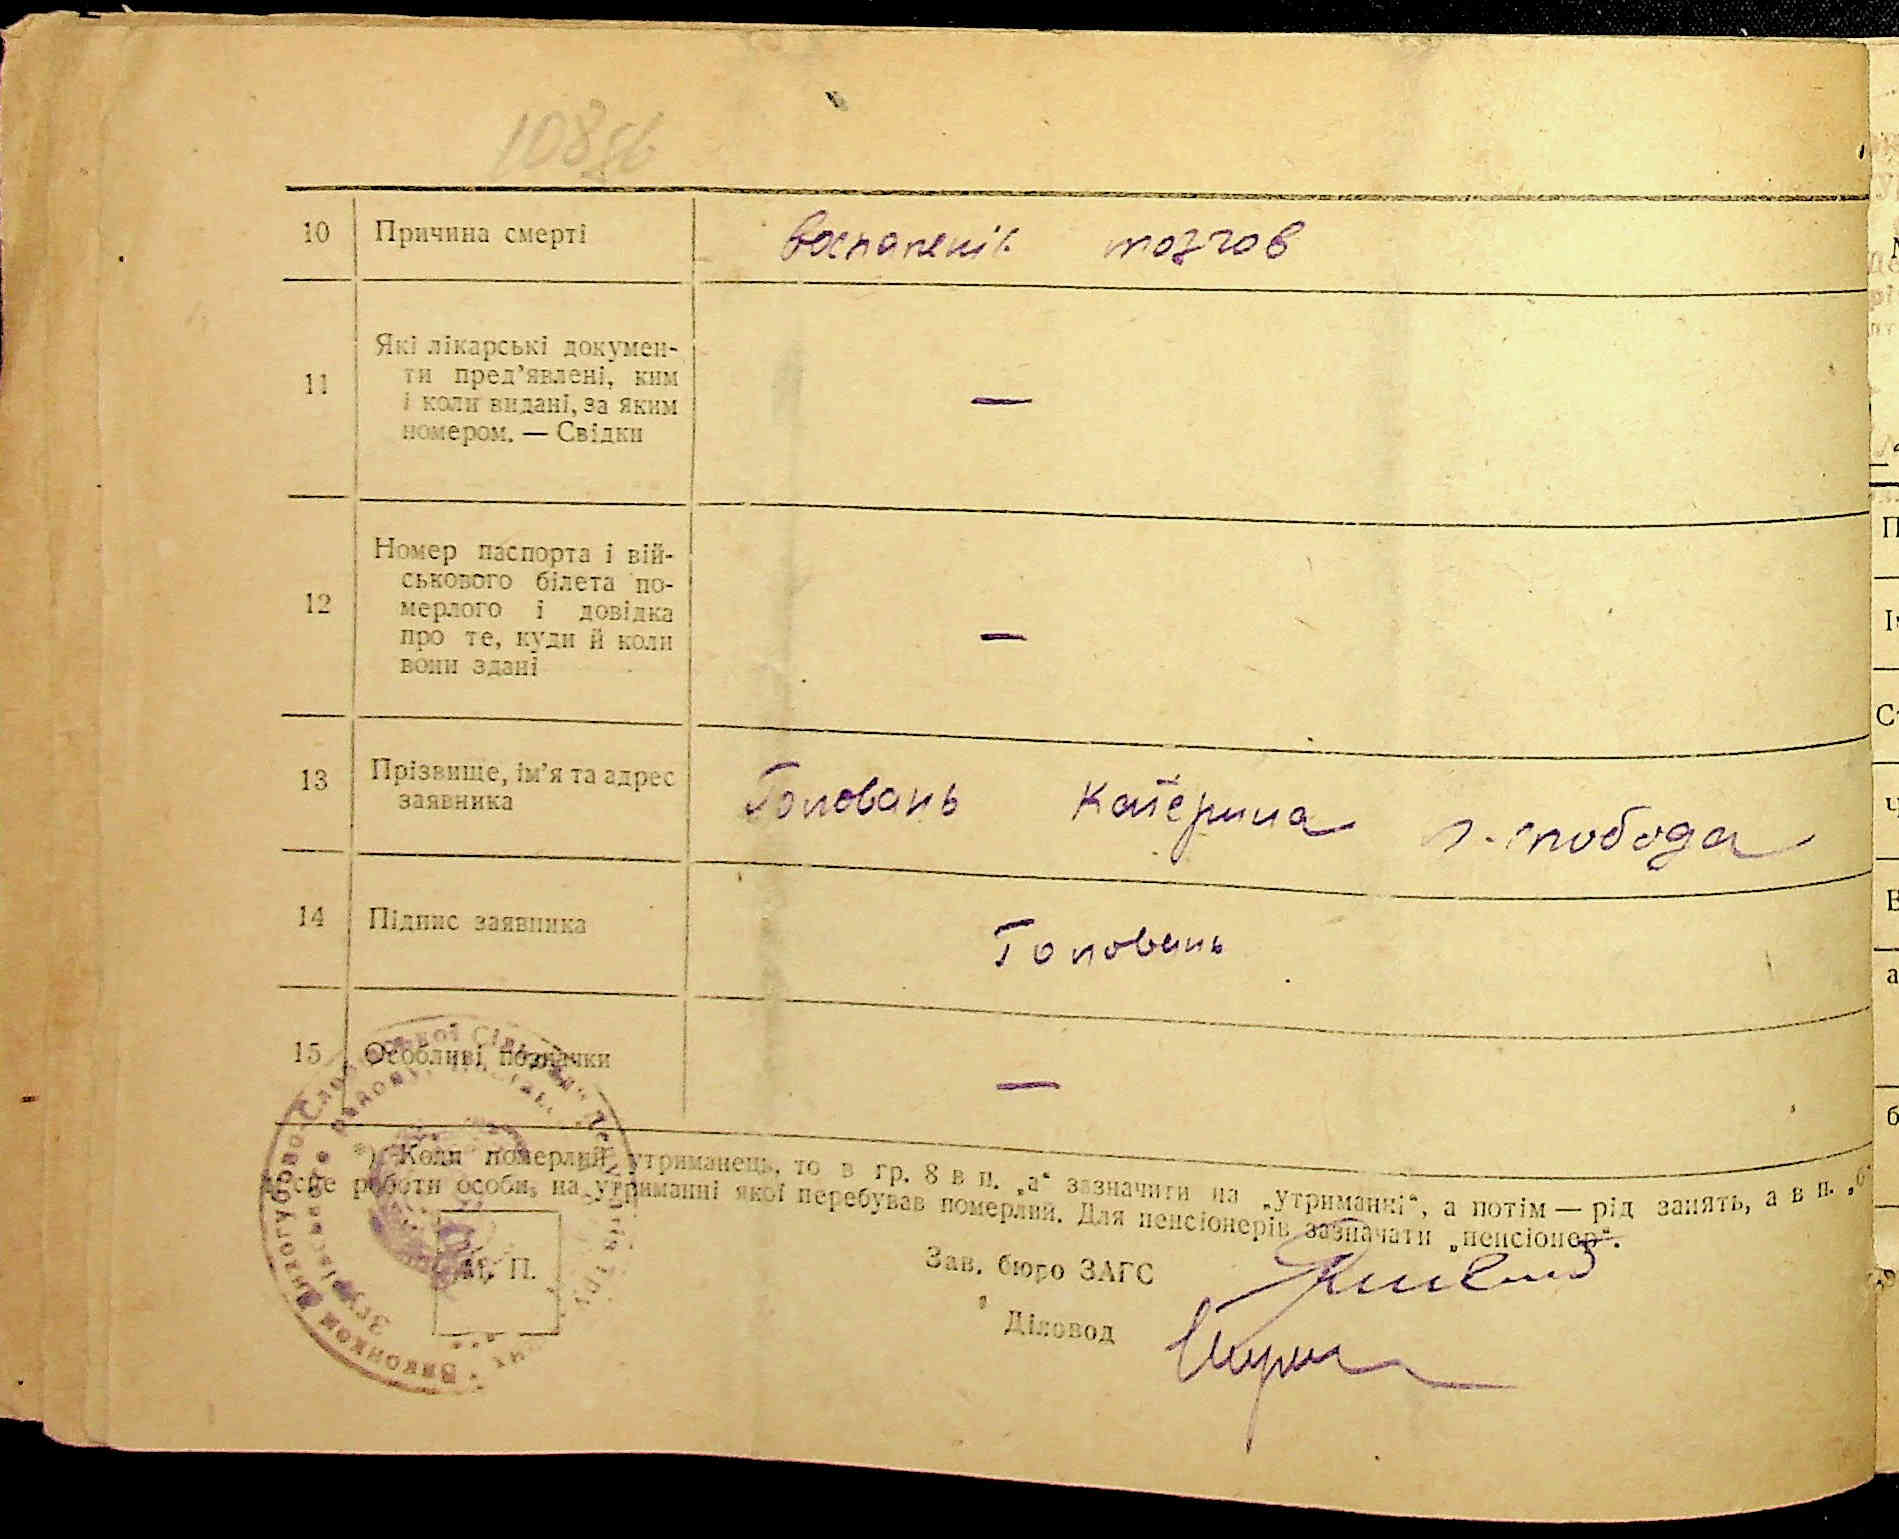 108
10 Причина смерті воспаленія мозгов
11 Які лікарські докумен-
ти пред’явлені, ким
і коли видані, за яким
номером. — Свідки —
12 Номер паспорта і вій-
ськового білета по-
мерлого і довідка
про те, куди й коли
вони здані —
13 Прізвище, ім’я та адрес
заявника Головань Катерина слобода
14 Підпис заявника Головань
15 Особливі позначки —
*) Коли померлий утриманець, то в гр. 8 в п. „а“ зазначити на „утриманні“, а потім — рід занять, а в п. „б“
місце роботи особи, на утриманні якої перебував померлий. Для пенсіонерів зазначати „пенсіонер“.
М. П.
Зав. бюро ЗАГС
Діловод